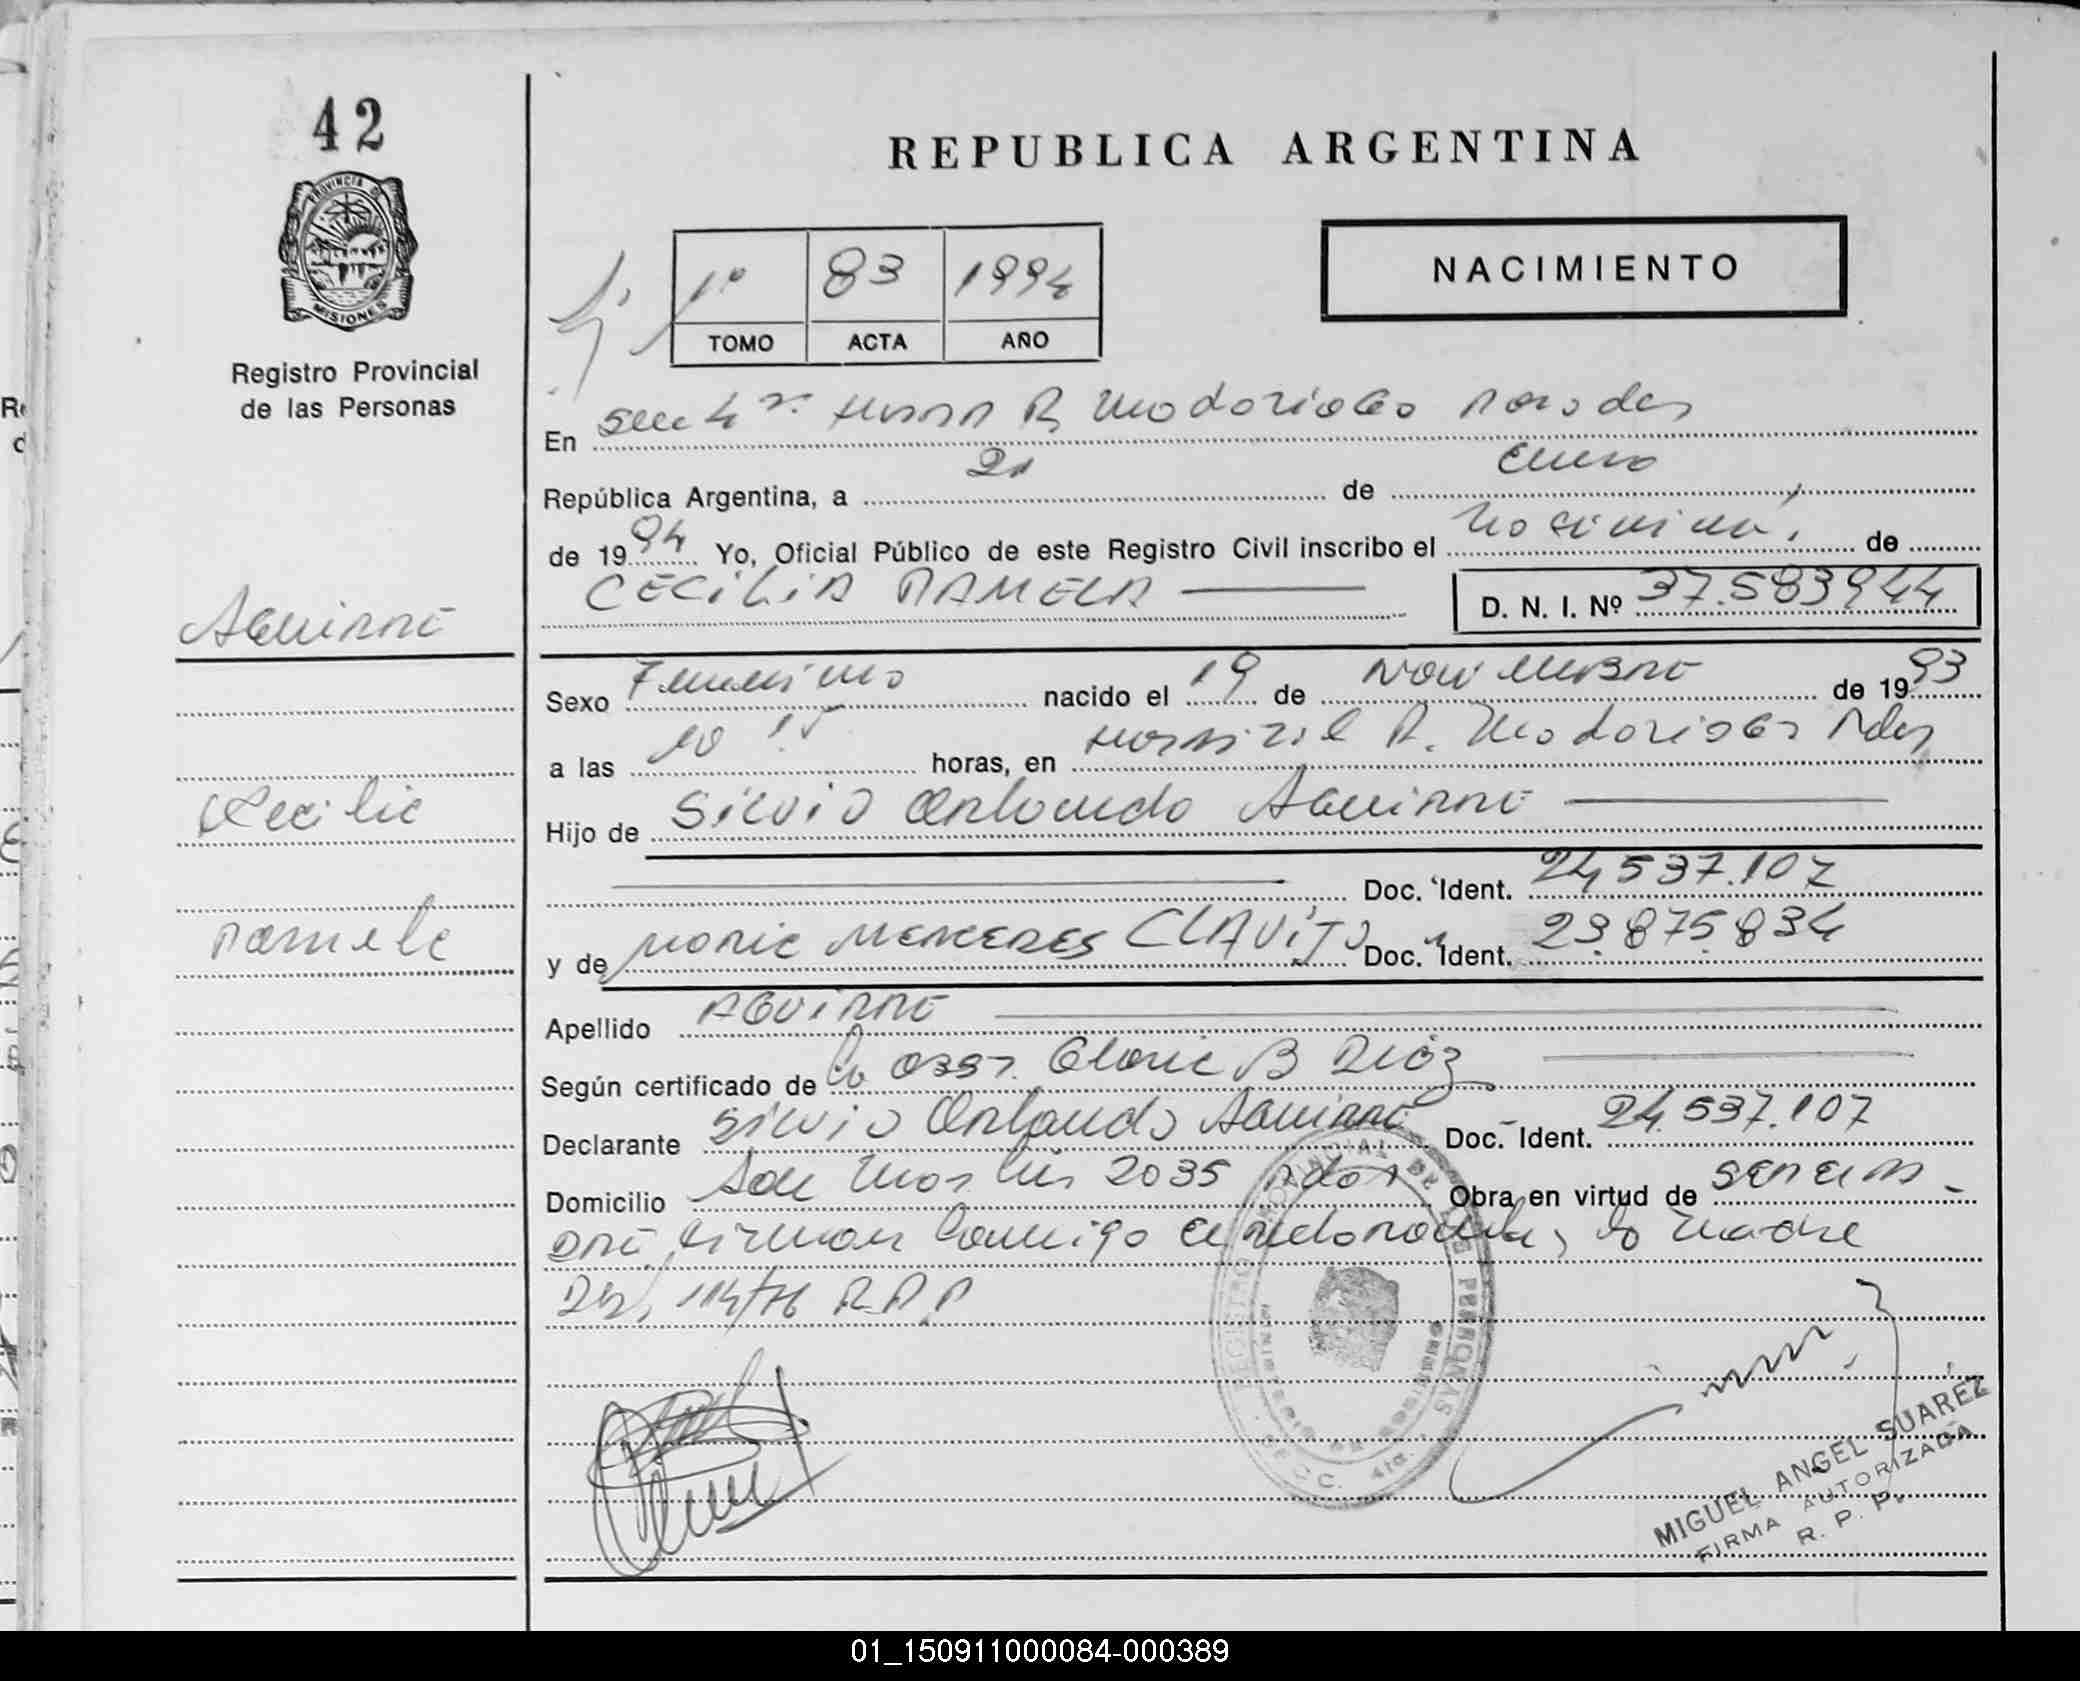 42
PROVINCIA DE
MISIONES
Registro Provincial
de las Personas
Aguirre
Cecilia
Pamela
REPUBLICA ARGENTINA
1º 83 1994
TOMO ACTA AÑO
NACIMIENTO
En Secc 4ta. R. Madariaga Posadas
República Argentina, a 21 de Enero
de 1994 Yo, Oficial Público de este Registro Civil inscribo el Nacimien. de
CECILIA PAMELA D. N. I. Nº 37.583944
Sexo Femenino nacido el 19 de Noviembre de 1993
a las 10 15 horas, en Hospital R. Madariaga Pdas
Hijo de Silvio Orlando Aguirre
Doc. Ident. 24,537.107
y de Maria Mercedes CLAVIJO Doc. Ident. 23.875.834
Apellido AGUIRRE
Según certificado de la Obst. Gloria B Diaz
Declarante Silvio Orlando Aguirre Doc. Ident. 24.537.107
Domicilio San Martin 2035 Pdas Obra en virtud de ser el p-
adre firman conmigo el declarante y la madre
114/76 R.P.P
REGISTRO PROVINCIAL DE LAS PERSONAS
MINISTERIO DE GOBIERNO
SECC. 4ta.
MIGUEL ANGEL SUAREZ
FIRMA AUTORIZADA
R. P. P.
01_150911000084-000389